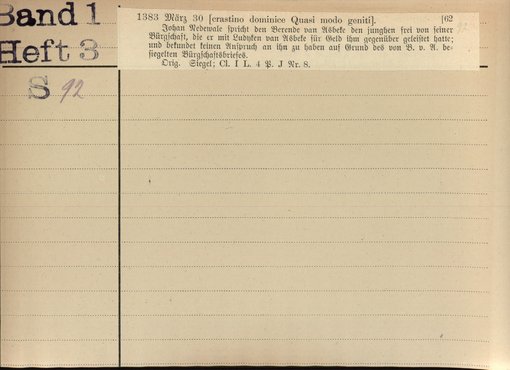 Band 1
Heft 3
S 92
1383 März 30 [crastino dominice Quasi modo geniti]. [62
Johan Nedevale spricht den Berende van Asbeke den junghen frei von seiner
Bürgschaft, die er mit Ludyken van Asbeke für Geld ihm gegenüber geleistet hatte;
und bekundet keinen Anspruch an ihn zu haben auf Grund des von B. v. A. be-
siegelten Bürgschaftsbriefes.
Orig. Siegel; Cl. I L. 4 P. J Nr. 8.